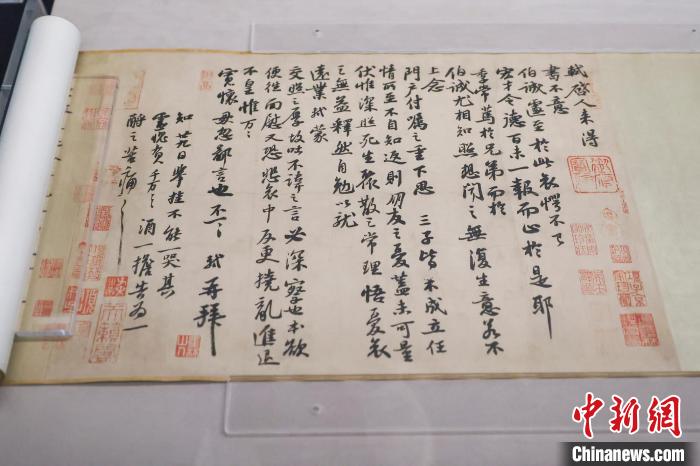 軾啓人來得
書不意
伯誠遽至於此哀愕不已
宏才令德百未一報而止於是耶
季常篤於兄弟而於
伯誠尤相知照想聞之無復生意若不
上念
門戶付囑之重下思三子皆未成立任
情所至不自知返則朋友之憂蓋未可量
伏惟深照死生聚散之常理悟憂哀
之無益釋然自勉以就
遠業軾蒙
交照之厚故吐不諱之言必深察也本欲
便往面慰又恐悲哀中反更撓亂進退
不皇惟万〻
寬懷毋忽鄙言也不一〻軾再拜
知廿九日舉挂不能一哭其
靈愧負千万〻酒一擔告為一
酹之苦痛〻
中新网
Chinanews.com